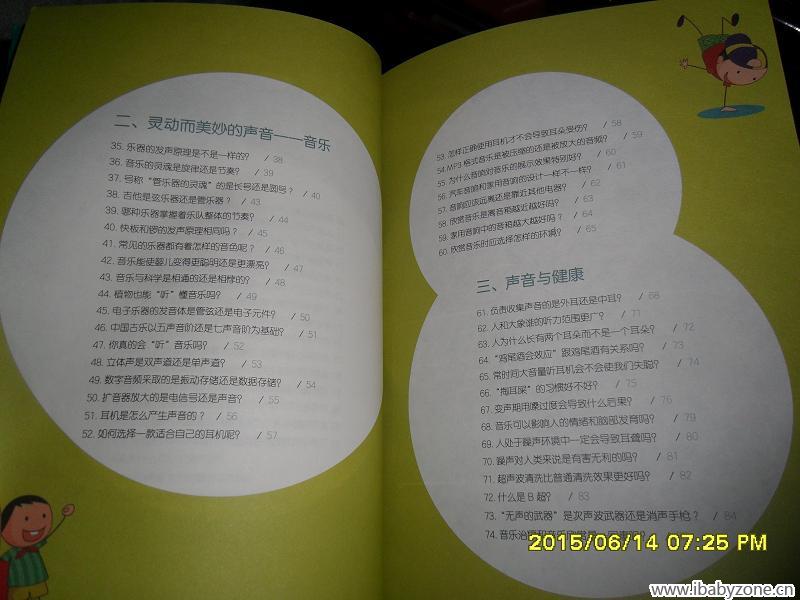 二、灵动而美妙的声音——音乐
35. 乐器的发声原理是不是一样的？ / 38
36. 音乐的灵魂是旋律还是节奏？ / 39
37. 号称“管乐器的灵魂”的是长号还是圆号？ / 40
38. 吉他是弦乐器还是管乐器？ / 43
39. 哪种乐器掌握着乐队整体的节奏？ / 44
40. 快板和锣的发声原理相同吗？ / 45
41. 常见的乐器都有着怎样的音色呢？ / 46
42. 音乐能使婴儿变得更聪明还是更漂亮？ / 47
43. 音乐与科学是相通的还是相悖的？ / 48
44. 植物也能“听”懂音乐吗？ / 49
45. 电子乐器的发音体是管弦还是电子元件？ / 50
46. 中国古乐以五声音阶还是七声音阶为基础？ / 51
47. 你真的会“听”音乐吗？ / 52
48. 立体声是双声道还是单声道？ / 53
49. 数字音频采取的是振动存储还是数据存储？ / 54
50. 扩音器放大的是电信号还是声音？ / 55
51. 耳机是怎么产生声音的？ / 56
52. 如何选择一款适合自己的耳机呢？ / 57
53. 怎样正确使用耳机才不会导致耳朵受伤？ / 58
54. MP3 格式音乐是被压缩的还是被放大的音频？ / 59
55. 为什么音响对音乐的展示效果特别好？ / 60
56. 汽车音响和家用音响的设计一样不一样？ / 61
57. 音响应该远离还是靠近其他电器？ / 62
58. 欣赏音乐是离音箱越近越好吗？ / 63
59. 家用音响中的音箱越大越好吗？ / 64
60. 欣赏音乐时应选择怎样的环境？ / 65
三、声音与健康
61. 负责收集声音的是外耳还是中耳？ / 68
62. 人和大象谁的听力范围更广？ / 71
63. 人为什么长有两个耳朵而不是一个耳朵？ / 72
64. “鸡尾酒会效应”跟鸡尾酒有关系吗？ / 73
65. 常时间大音量听耳机会不会使我们失聪？ / 74
66. “掏耳屎”的习惯好不好？ / 75
67. 变声期用嗓过度会导致什么后果？ / 76
68. 音乐可以影响人的情绪和脑部发育吗？ / 79
69. 人处于噪声环境中一定会导致耳聋吗？ / 80
70. 噪声对人类来说是有害无利的吗？ / 81
71. 超声波清洗比普通清洗效果更好吗？ / 82
72. 什么是 B 超？ / 83
73. “无声的武器”是次声波武器还是消声手枪？ / 84
74. 音乐治
2015/06/14 07:25 PM
www.ibabyzone.cn